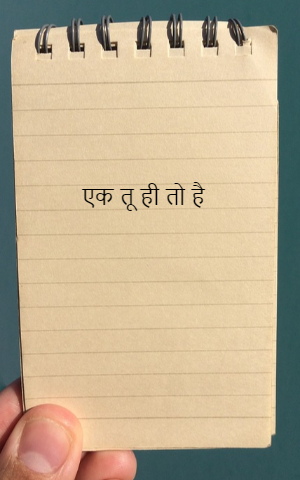 एक तू ही तो है